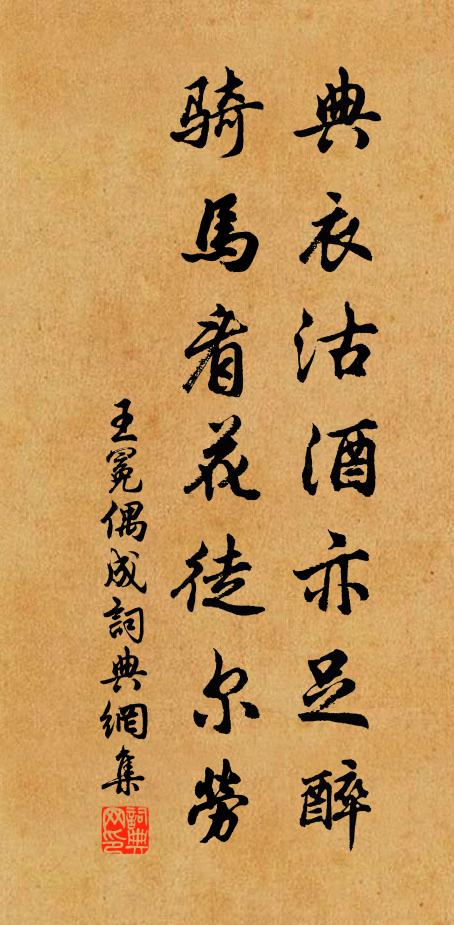 典衣沽酒亦足醉
騎馬看花徒尔勞
王冕偶成詞典網集
詞典网印